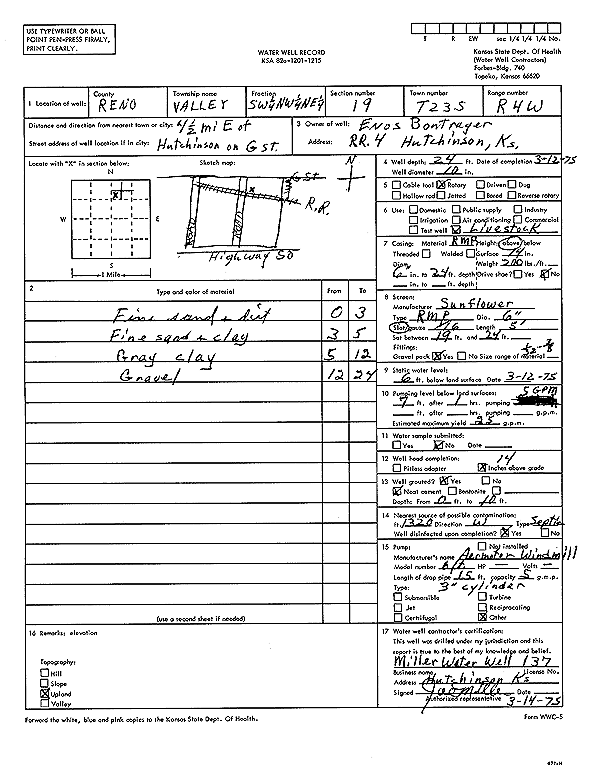 USE TYPEWRITER OR BALL
POINT PEN-PRESS FIRMLY,
PRINT CLEARLY.
WATER WELL RECORD
KSA 82a-1201-1215
T R EW sec 1/4 1/4 1/4 No.
Kansas State Dept. Of Health
(Water Well Contractors)
Forbes-Bldg. 740
Topeka, Kansas 66620
1 Location of well: County RENO Township name VALLEY Fraction SW¼NW¼NE¼ Section number 19 Town number T23S Range number R4W
Distance and direction from nearest town or city: 4½ mi E of
Street address of well location if in city: Hutchinson on G St.
3 Owner of well: Enos Bontrager
Address: RR. 4 Hutchinson, Ks.
Locate with "X" in section below:
N
W E
S
1 Mile
X
Sketch map:
N
G St
x
R.R.
Highway 50
4 Well depth: 24 ft. Date of completion 3-12-75
Well diameter 10 in.
5 Cable tool X Rotary Driven Dug
Hollow rod Jetted Bored Reverse rotary
6 Use: Domestic Public supply Industry
Irrigation Air conditioning Commercial
Test well Livestock
7 Casing: Material RMP Height: above below
Threaded Welded Surface 14 in.
Diam. Weight 200 lbs./ft.
6 in. to 24 ft. depth Drive shoe? Yes X No
in. to ft. depth
2 Type and color of material From To
Fine sand & dirt 0 3
Fine sand & clay 3 5
Gray clay 5 12
Gravel 12 24
(use a second sheet if needed)
8 Screen:
Manufacturer Sunflower
Type RMP Dia. 6"
Slot/gauze 1/16 Length 5'
Set between 19 ft. and 24 ft.
Fittings:
Gravel pack X Yes No Size range of material
9 Static water level:
6 ft. below land surface Date 3-12-75
10 Pumping level below land surface: 5 GPM
9 ft. after 1 hrs. pumping
ft. after hrs. pumping g.p.m.
Estimated maximum yield 25 g.p.m.
11 Water sample submitted:
Yes X No Date
12 Well head completion: 14
Pitless adapter X Inches above grade
13 Well grouted? X Yes No
X Neat cement Bentonite
Depth: From 0 ft. to 10 ft.
14 Nearest source of possible contamination:
ft. 1320 Direction W Type Septic
Well disinfected upon completion? X Yes No
15 Pump: Not installed
Manufacturer's name Aermotor Windmill
Model number 6ft HP — Volts —
Length of drop pipe 15 ft. capacity 5 g.p.m.
Type: 3" cylinder
Submersible Turbine
Jet Reciprocating
Centrifugal X Other
16 Remarks: elevation
Topography:
Hill
Slope
X Upland
Valley
17 Water well contractor's certification:
This well was drilled under my jurisdiction and this
report is true to the best of my knowledge and belief.
Miller Water Well 137
Business name License No.
Address Hutchinson Ks
Signed Date 3-14-75
Authorized representative
Forward the white, blue and pink copies to the Kansas State Dept. Of Health.
Form WWC-5